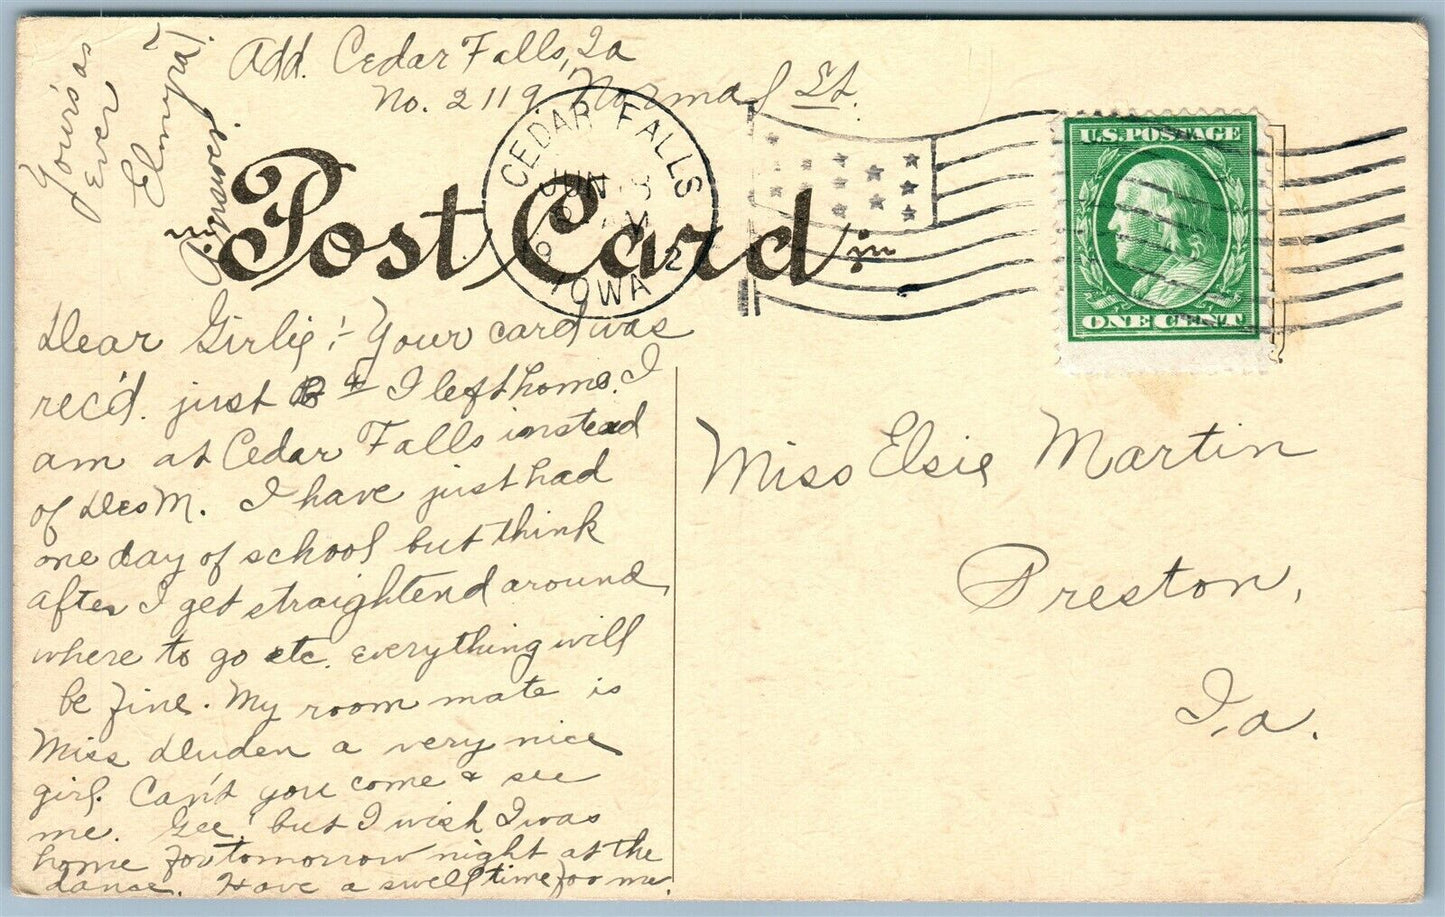 Add. Cedar Falls, Ia
No. 2119 Normal St.
Your's as
Ever
Elmyra
(Answer).
CEDAR FALLS
JUN
AM
191 2
IOWA
Post Card
U.S. POSTAGE
ONE CENT
Dear Girlie:- Your card was
rec'd. just B 4 I left home. I
am at Cedar Falls instead
of Des M. I have just had
one day of school but think
after I get straightend around
where to go etc. everything will
be fine. My room mate is
Miss Duden a very nice
girl. Can't you come & see
me. Gee, but I wish I was
home for tomorrow night at the
dance. Have a swell time for me.
Miss Elsie Martin
Preston,
Ia.